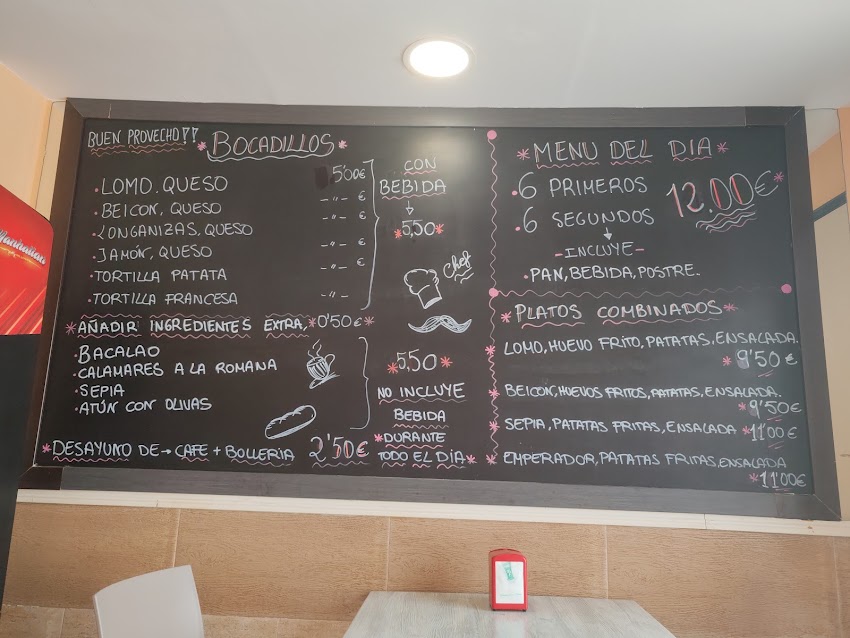 BUEN PROVECHO!!
*BOCADILLOS*
·LOMO, QUESO 5'00€
·BEICON, QUESO -"- €
·LONGANIZAS, QUESO -"- €
·JAMÓN, QUESO -"- €
·TORTILLA PATATA €
·TORTILLA FRANCESA -"-
CON
BEBIDA
↓
*5,50*
Chef
*AÑADIR INGREDIENTES EXTRA, *0'50€*
·BACALAO
·CALAMARES A LA ROMANA
·SEPIA
·ATÚN CON OLIVAS
*5,50*
NO INCLUYE
BEBIDA
*DURANTE
TODO EL DÍA*
*DESAYUNO DE → CAFE + BOLLERIA 2'50€
*MENU DEL DIA*
·6 PRIMEROS
12.00€*
·6 SEGUNDOS
↓
-INCLUYE-
·PAN, BEBIDA, POSTRE.
*PLATOS COMBINADOS*
*LOMO, HUEVO FRITO, PATATAS, ENSALADA.
*9'50€
*BEICON, HUEVOS FRITOS, PATATAS, ENSALADA.
*9'50€
*SEPIA, PATATAS FRITAS, ENSALADA *11'00€
*EMPERADOR, PATATAS FRITAS, ENSALADA
*11'00€
Manhattan